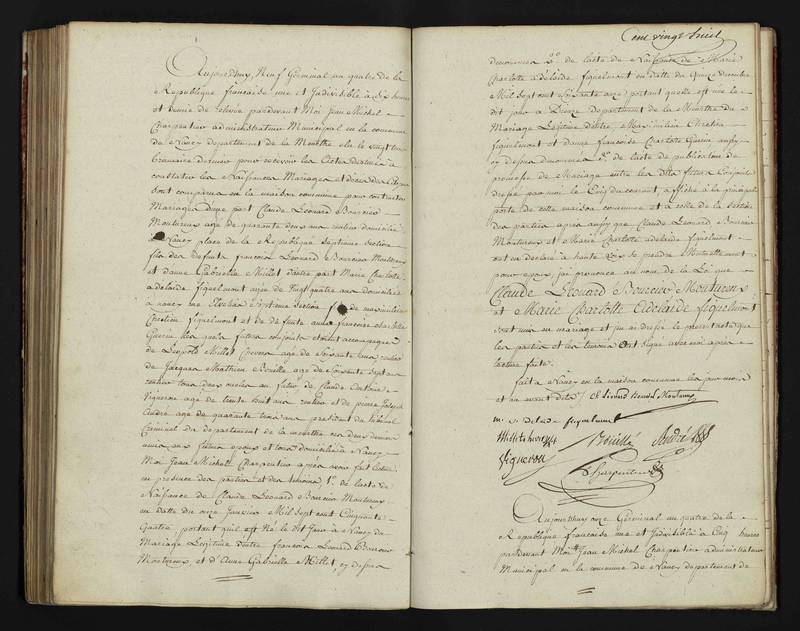 Aujourdhuy Neuf Germinal an quatre de la
Republique francaise une et Indivisible à six heures
et demie de relevée pardevant Moi Jean Michel
Charpentier administrateur Municipal en la commune
de Nancy departement de la Meurthe élu le vingt un
brumaire dernier pour recevoir les actes destinés à
constater les Naissances Mariages et décès des Citoyens
sont comparus en la maison commune pour contracter
Mariage d'une part Claude Leonard Bourcier
Montureux age de quarante deux ans rentier domicilié
à Nancy place de la Republique septieme section
fils des defunts francois Leonard Bourcier Montureux
et dame Gabrielle Millet d'autre part Marie Charlotte
adelaide fiquelmont agée de Vingt quatre ans domiciliée
à nancy rue septieme section fille de maximilien
Chretien fiquelmont et de defunte anne francoise charlotte
Guerin les quels futurs conjoints etoient accompagnés
de Leopold Millet Chevers age de soixante ans rentier
de Jacques Mathieu Rouillé age de soixante sept ans
rentier tous deux oncles au futur de Claude Antoine
Vigneron age de trente huit ans rentier et de pierre Joseph
André age de quarante trois ans president du tribunal
Criminel du departement de la meurthe ces deux derniers
amis aux futurs epoux et tous domiciliés à Nancy
Moi Jean Michel Charpentier après avoir fait lecture
en presence des parties et des temoins 1.° de l'acte de
Naissance de Claude Leonard Bourcier Montureux
en datte du onze Janvier Mil sept cent Cinquante
Quatre portant quil est Né le dit Jour à Nancy du
Mariage Legitime d'entre francois Leonard Bourcier
Montureux et d'Anne Gabrielle Millet, cy dessus
Cent vingt huit
denommés 2.° de l'acte de Naissance de Marie
Charlotte adelaide fiquelmont en datte du Quinze decembre
Mil sept cent soixante onze portant quelle est née le
dit jour à Dieuze Departement de la Meurthe du
Mariage Legitime d'entre Maximilien Chretien
fiquelmont et dame francoise Charlotte Guerin aussy
cy dessus denommés 3.° de l'acte de publication de
promesse de Mariage entre les dits futurs Conjoints
dressé par moi le Cinq du courant, affiché à la principale
porte de cette maison commune et à celle de la section
des parties après aussy que Claude Leonard Bourcier
Montureux et Marie Charlotte adelaide fiquelmont
ont eu declaré à haute voix se prendre Mutuellement
pour epoux, jai prononcé au nom de la Loi que
Claude Léonard Bourcier Montureux
et Marie Charlotte Adélaide fiquelmont
sont unis en mariage et jai redigé le present acte que
les parties et les temoins ont signé avec moi après
lecture faite.
fait à Nancy en la maison commune les jour mois
et an avant dits Cl Léonard Bourcier Montureux
m. c. adelade fiquelmont
Millet chevers Rouillé André
Vigneron
Charpentier
Aujourdhuy onze Germinal an quatre de la
Republique francaise une et Indivisible à Cinq heures
pardevant Moi Jean Michel Charpentier administrateur
Municipal en la commune de Nancy departement de